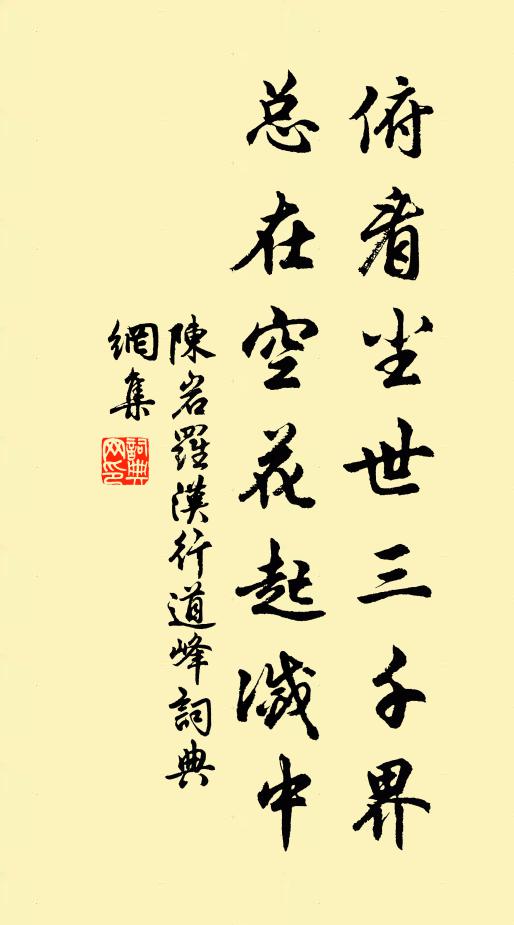 俯看尘世三千界
总在空花起滅中
陳岩羅漢行道峰詞典
網集
詞典网印